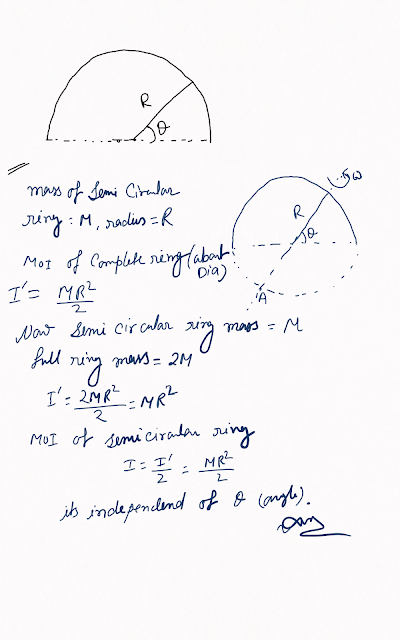 R
θ
mass of Semi Circular
ring = M, radius = R
MOI of Complete ring (about
Dia)
I' = MR²/2
Now Semi circular ring mass = M
full ring mass = 2M
I' = 2MR²/2 = MR²
MOI of semicircular ring
I = I'/2 = MR²/2
its independend of θ (angle).
Ans
ω
R
θ
A